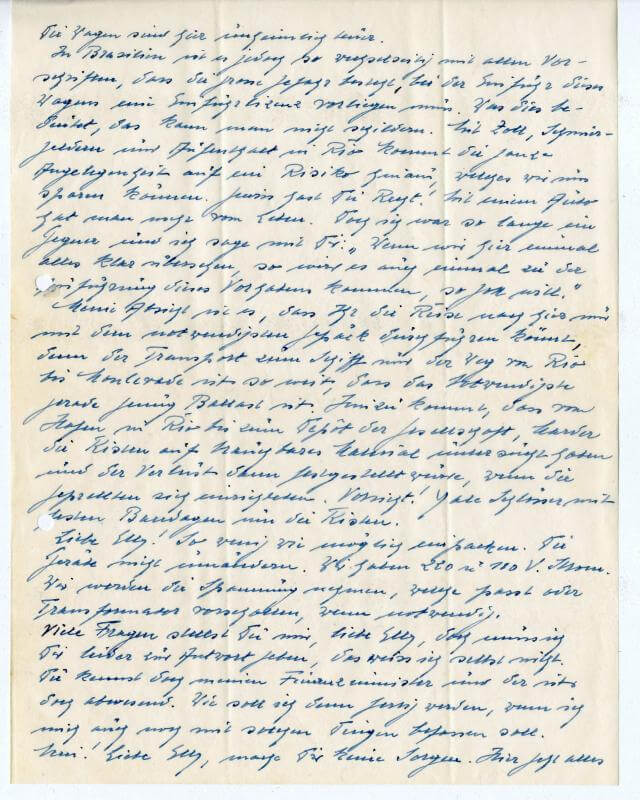 Die Wagen sind hier unheimlich teuer.
In Brasilien ist es jedoch so wechselseitig mit allen Vor-
schriften, dass die grosse Gefahr besteht, bei der Einfuhr dieses
Wagens eine Einfuhrlizenz vorliegen muss. Was dies be-
deutet, das kann man nicht schildern. Mit Zoll, Schmier-
geldern und Aufenthalt in Rio kommt die ganze
Angelegenheit auf ein Risiko hinaus, welches wir uns
sparen können. Gewiss hast Du Recht! Mit einem Auto
hat man mehr vom Leben. Doch ich war so lange ein
Gegner und ich sage mit Dir: „Wenn wir hier einmal
alles klar übersehen, so wird es auch einmal zu der
Ausführung dieses Vorhabens kommen, so Gott will."
Meine Absicht ist es, dass Ihr die Reise nach hier nur
mit dem notwendigsten Gepäck durchführen könnt,
denn der Transport zum Schiff und der Weg von Rio
bis Monlevade ist so weit, dass das Notwendigste
gerade genug Ballast ist. Hinzu kommt, dass vom
Hafen in Rio bis zum Depot der Gesellschaft, Marder
die Kisten auf brauchbares Material untersucht haben
und der Verlust dann festgestellt würde, wenn die
Geprellten sich einrichteten. Vorsicht! Gute Schlösser mit
festen Bandagen um die Kisten.
Liebe Elly! So wenig wie möglich einpacken. Die
Geräte nicht umändern. Wir haben 220 u 110 V. Strom.
Wir werden die Spannung nehmen, welche passt oder
Transformator vorschalten, wenn notwendig.
Viele Fragen stellst Du mir, liebe Elly, doch muss ich
Dir leider zur Antwort geben, das weiss ich selbst nicht.
Du kennst doch meinen Finanzminister und der ist
doch abwesend. Wie soll ich denn fertig werden, wenn ich
mich auch noch mit solchen Dingen befassen soll.
Nein! Liebe Elly, mache Dir keine Sorgen. Hier geht alles